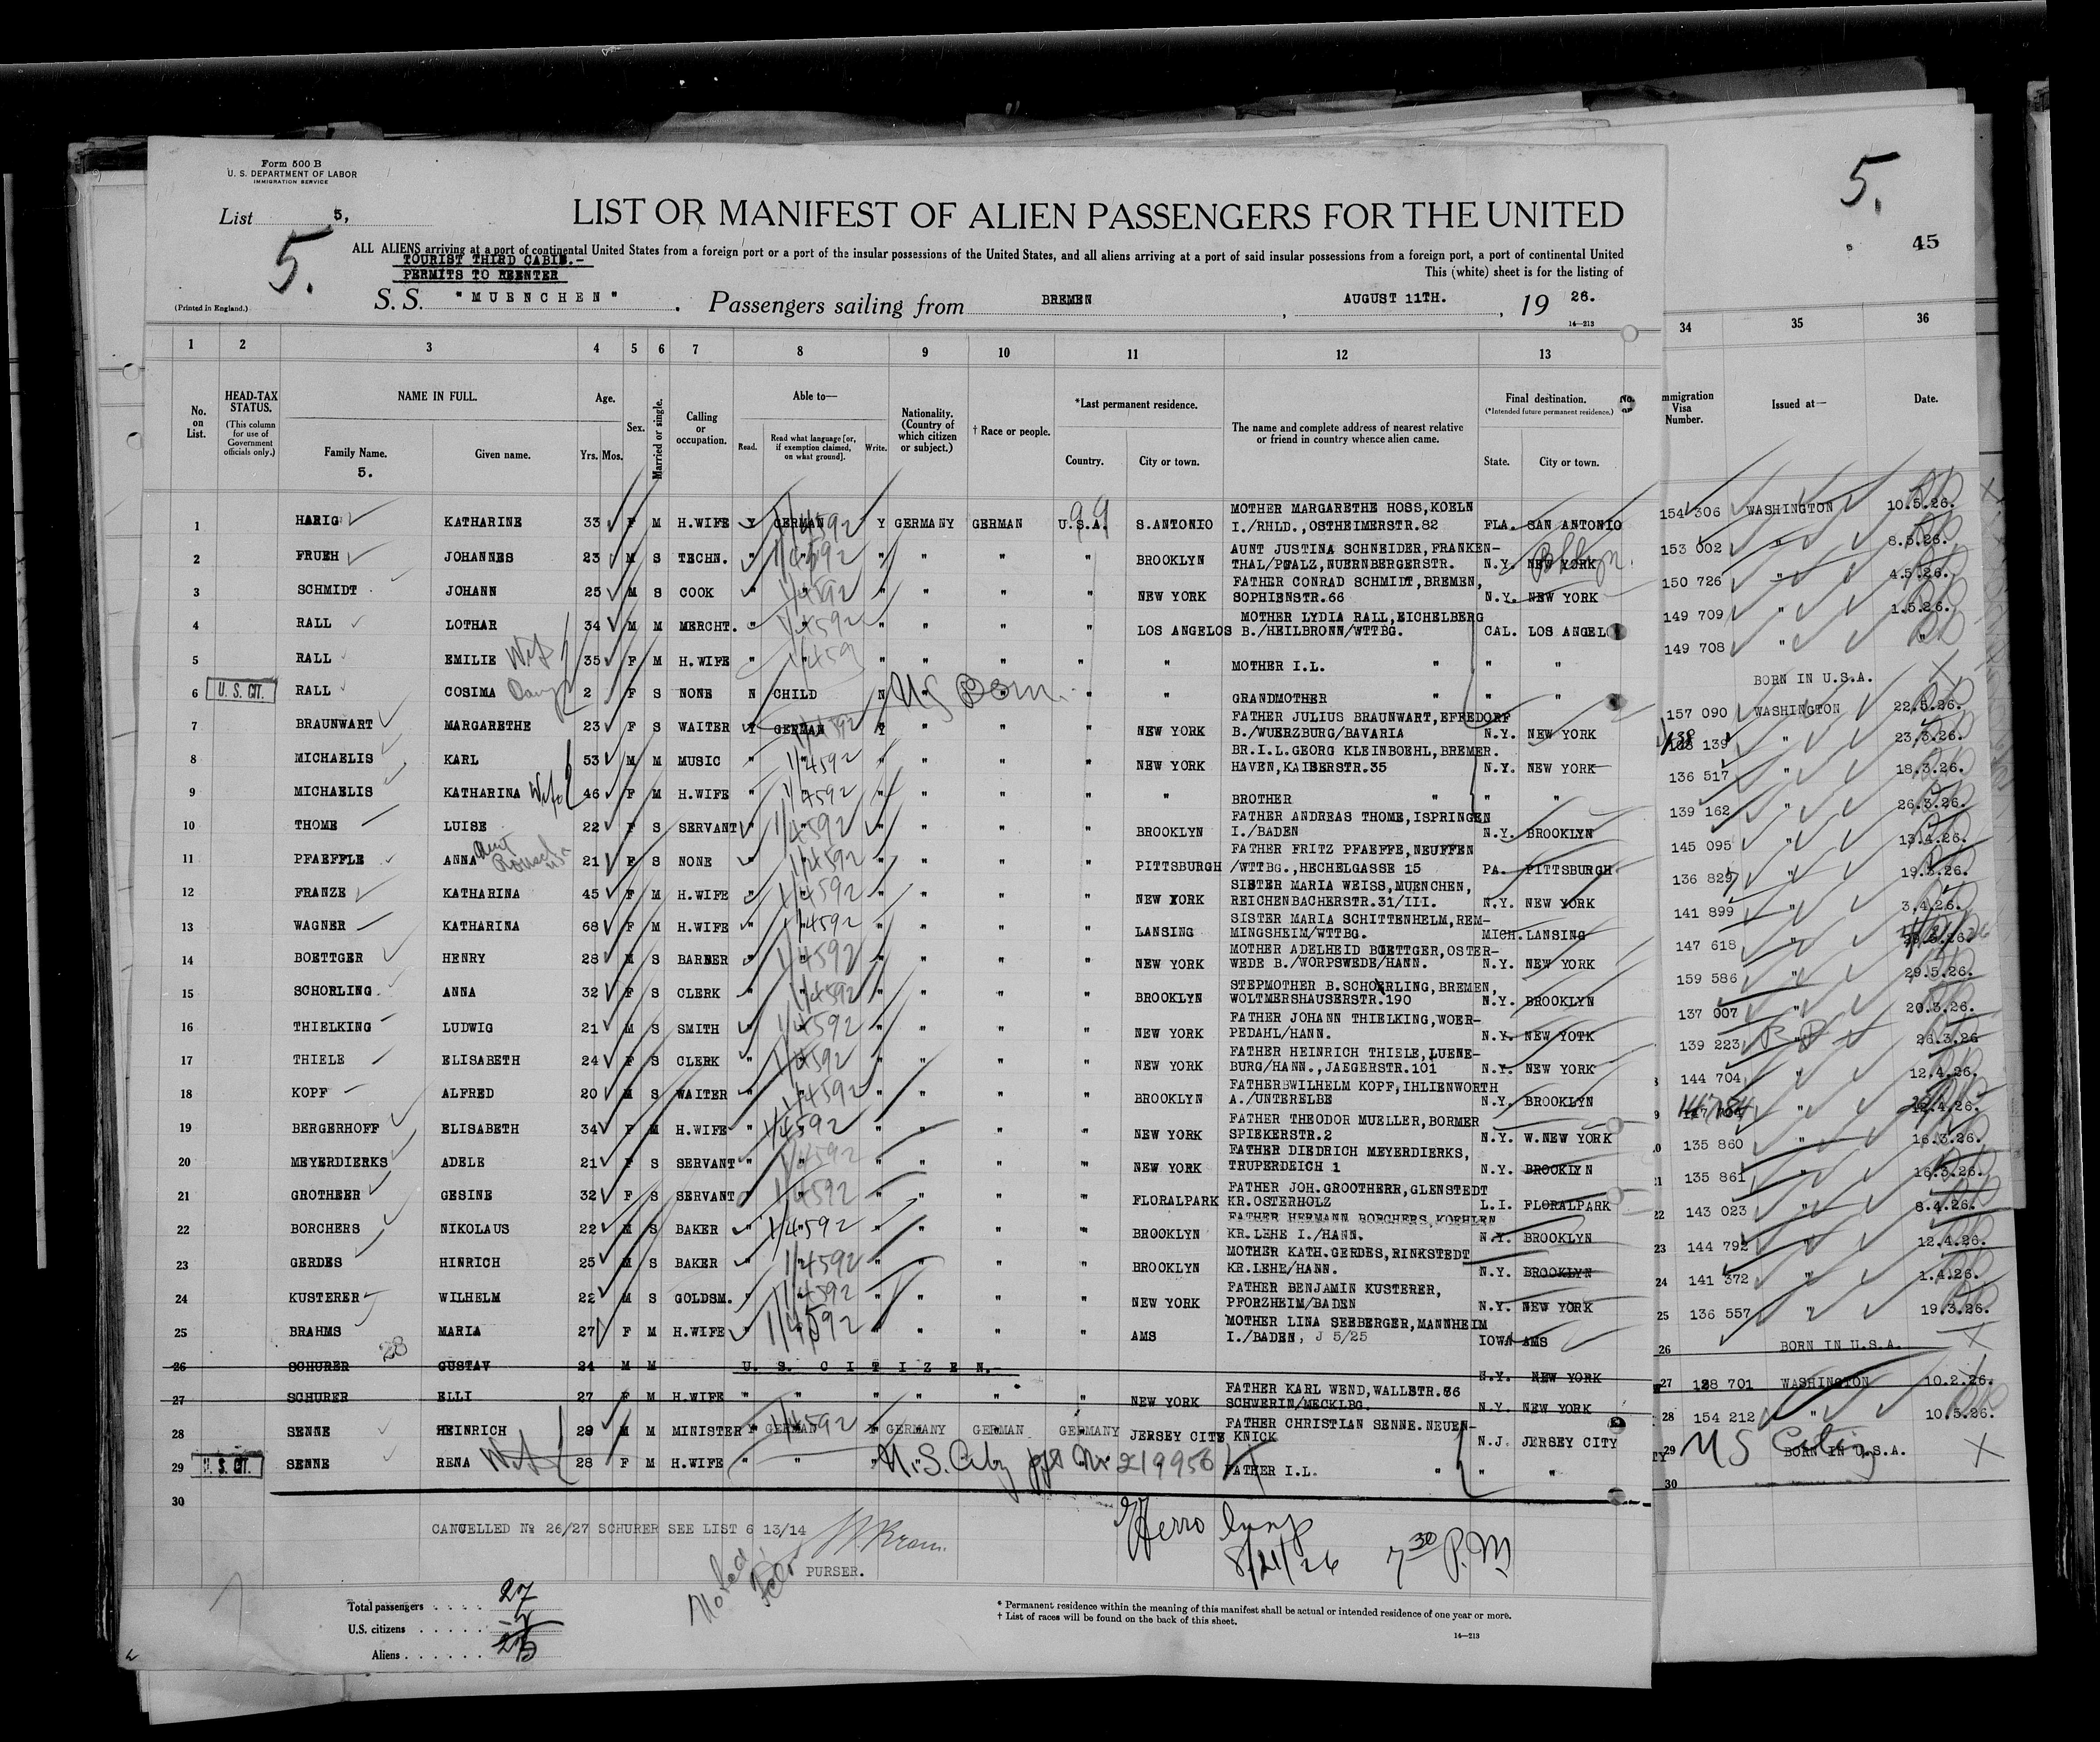 Form 500 B
U. S. DEPARTMENT OF LABOR
IMMIGRATION SERVICE
List 5,
5.
LIST OR MANIFEST OF ALIEN PASSENGERS FOR THE UNITED
ALL ALIENS arriving at a port of continental United States from a foreign port or a port of the insular possessions of the United States, and all aliens arriving at a port of said insular possessions from a foreign port, a port of continental United
TOURIST THIRD CABIN.-
PERMITS TO REENTER
This (white) sheet is for the listing of
(Printed in England.)
S. S. "MUENCHEN" . Passengers sailing from BREMEN , AUGUST 11TH. , 19 26.
14—213
5.
45
1 2 3 4 5 6 7 8 9 10 11 12 13 34 35 36
No. on List.
HEAD-TAX STATUS.
(This column for use of Government officials only.)
NAME IN FULL.
Family Name.
5.
Given name.
Age.
Yrs. Mos.
Sex.
Married or single.
Calling or occupation.
Able to—
Read.
Read what language [or, if exemption claimed, on what ground].
Write.
Nationality. (Country of which citizen or subject.)
† Race or people.
*Last permanent residence.
Country. City or town.
The name and complete address of nearest relative or friend in country whence alien came.
Final destination.
(*Intended future permanent residence.)
State. City or town.
mmigration Visa Number.
Issued at—
Date.
1 HARIG KATHARINE 33 F M H.WIFE Y GERMAN 1/4592 Y GERMANY GERMAN U.S.A. S.ANTONIO MOTHER MARGARETHE HOSS,KOELN I./RHLD.,OSTHEIMERSTR.82 FLA. SAN ANTONIO 154 306 WASHINGTON 10.5.26.
2 FRUEH JOHANNES 23 M S TECHN. " 1/4592 " " " " BROOKLYN AUNT JUSTINA SCHNEIDER,FRANKEN- THAL/PFALZ,NUERNBERGERSTR. N.Y. NEW YORK Bklyn. 153 002 " 8.5.26.
3 SCHMIDT JOHANN 25 M S COOK " 1/4592 " " " " NEW YORK FATHER CONRAD SCHMIDT,BREMEN, SOPHIENSTR.66 N.Y. NEW YORK 150 726 " 4.5.26.
4 RALL LOTHAR 34 M M MERCHT. " 1/4592 " " " " LOS ANGELOS MOTHER LYDIA RALL,EICHELBERG B./HEILBRONN/WTTBG. CAL. LOS ANGEL 149 709 " 1.5.26.
5 RALL EMILIE Wife 35 F M H.WIFE " 1/459 " " " " " MOTHER I.L. " " " 149 708 " "
6 U. S. CIT. RALL COSIMA Daug 2 F S NONE N CHILD N US Born " " GRANDMOTHER " " " BORN IN U.S.A.
7 BRAUNWART MARGARETHE 23 F S WAITER Y GERMAN 1/4592 Y " " " NEW YORK FATHER JULIUS BRAUNWART,EFFEDORF B./WUERZBURG/BAVARIA N.Y. NEW YORK 157 090 WASHINGTON 22.5.26.
8 MICHAELIS KARL 53 M M MUSIC " 1/4592 " " " " NEW YORK BR.I.L.GEORG KLEINBOEHL,BREMER. HAVEN,KAISERSTR.35 N.Y. NEW YORK 138 139 " 23.3.26.
9 MICHAELIS KATHARINA Wife 46 F M H.WIFE " 1/4592 " " " " " BROTHER " " " 136 517 " 18.3.26.
10 THOME LUISE 22 F S SERVANT " 1/4592 " " " " BROOKLYN FATHER ANDREAS THOME,ISPRINGEN I./BADEN N.Y. BROOKLYN 139 162 " 26.3.26.
11 PFAEFFLE ANNA 21 F S NONE " 1/4592 " " " " PITTSBURGH FATHER FRITZ PFAEFFE,NEUFFEN /WTTBG.,HECHELGASSE 15 PA. PITTSBURGH 145 095 " 13.4.26.
12 FRANZE KATHARINA 45 F M H.WIFE " 1/4592 " " " " NEW YORK SISTER MARIA WEISS,MUENCHEN, REICHENBACHERSTR.31/III. N.Y. NEW YORK 136 829 " 19.3.26.
13 WAGNER KATHARINA 68 F M H.WIFE " 1/4592 " " " " LANSING SISTER MARIA SCHITTENHELM,REM- MINGSHEIM/WTTBG. MICH. LANSING 141 899 " 3.4.26.
14 BOETTGER HENRY 28 M S BARBER " 1/4592 " " " " NEW YORK MOTHER ADELHEID BOETTGER,OSTER- WEDE B./WORPSWEDE/HANN. N.Y. NEW YORK 147 618 "
15 SCHORLING ANNA 32 F S CLERK " 1/4592 " " " " BROOKLYN STEPMOTHER B.SCHOERLING,BREMEN, WOLTMERSHAUSERSTR.190 N.Y. BROOKLYN 159 586 " 29.5.26.
16 THIELKING LUDWIG 21 M S SMITH " 1/4592 " " " " NEW YORK FATHER JOHANN THIELKING,WOER- PEDAHL/HANN. N.Y. NEW YOTK 137 007 " 20.3.26.
17 THIELE ELISABETH 24 F S CLERK " 1/4592 " " " " NEW YORK FATHER HEINRICH THIELE,LUENE- BURG/HANN.,JAEGERSTR.101 N.Y. NEW YORK 139 223 " 26.3.26
18 KOPF ALFRED 20 M S WAITER " 1/4592 " " " " BROOKLYN FATHERBWILHELM KOPF,IHLIENWORTH A./UNTERELBE N.Y. BROOKLYN 144 704 " 12.4.26.
19 BERGERHOFF ELISABETH 34 F M H.WIFE " 1/4592 " " " " NEW YORK FATHER THEODOR MUELLER,BORMER SPIEKERSTR.2 N.Y. W.NEW YORK " 12.4.26.
20 MEYERDIERKS ADELE 21 F S SERVANT " 1/4592 " " " " NEW YORK FATHER DIEDRICH MEYERDIERKS, TRUPERDEICH 1 N.Y. BROOKLYN 135 860 " 16.3.26.
21 GROTHEER GESINE 32 F S SERVANT 1/4592 " " " " FLORALPARK FATHER JOH.GROOTHERR,GLENSTEDT KR.OSTERHOLZ L.I. FLORALPARK 135 861 " 16.3.26.
22 BORCHERS NIKOLAUS 22 M S BAKER " 1/4592 " " " " BROOKLYN FATHER HERMANN BORCHERS,KOEHLEN KR.LEHE I./HANN. N.Y. BROOKLYN 143 023 " 8.4.26.
23 GERDES HINRICH 25 M S BAKER " 1/4592 " " " " BROOKLYN MOTHER KATH.GERDES,RINKSTEDT KR.LEHE/HANN. N.Y. BROOKLYN 144 792 " 12.4.26.
24 KUSTERER WILHELM 22 M S GOLDSM. " 1/4592 " " " " NEW YORK FATHER BENJAMIN KUSTERER, PFORZHEIM/BADEN N.Y. NEW YORK 141 372 " 1.4.26.
25 BRAHMS MARIA 28 27 F M H.WIFE " 1/4592 " " " " AMS MOTHER LINA SEEBERGER,MANNHEIM I./BADEN, J 5/25 IOWA AMS 136 557 " 19.3.26.
26 SCHURER GUSTAV 24 M M U. S. CITIZEN.- N.Y. NEW YORK BORN IN U.S.A.
27 SCHURER ELLI 27 F M H.WIFE " " " " " " NEW YORK FATHER KARL WEND,WALLSTR.86 SCHWERIN/MECKLBG. N.Y. NEW YORK 128 701 WASHINGTON 10.2.26.
28 SENNE HEINRICH 29 M M MINISTER Y GERMAN 1/4592 Y GERMANY GERMAN GERMANY JERSEY CITY FATHER CHRISTIAN SENNE.NEUEN- KNICK N.J. JERSEY CITY 154 212 " 10.5.26.
29 U. S. CIT. SENNE RENA Wife 28 F M H.WIFE " " " U.S. FATHER I.L. " " " US Citiz BORN IN U.S.A.
30
CANCELLED No 26/27 SCHURER SEE LIST 6 13/14
PURSER.
8/21/26 7 30 P.M
Total passengers . . . . 27
U.S. citizens . . . . .
Aliens . . . . . .
* Permanent residence within the meaning of this manifest shall be actual or intended residence of one year or more.
† List of races will be found on the back of this sheet.
14—213